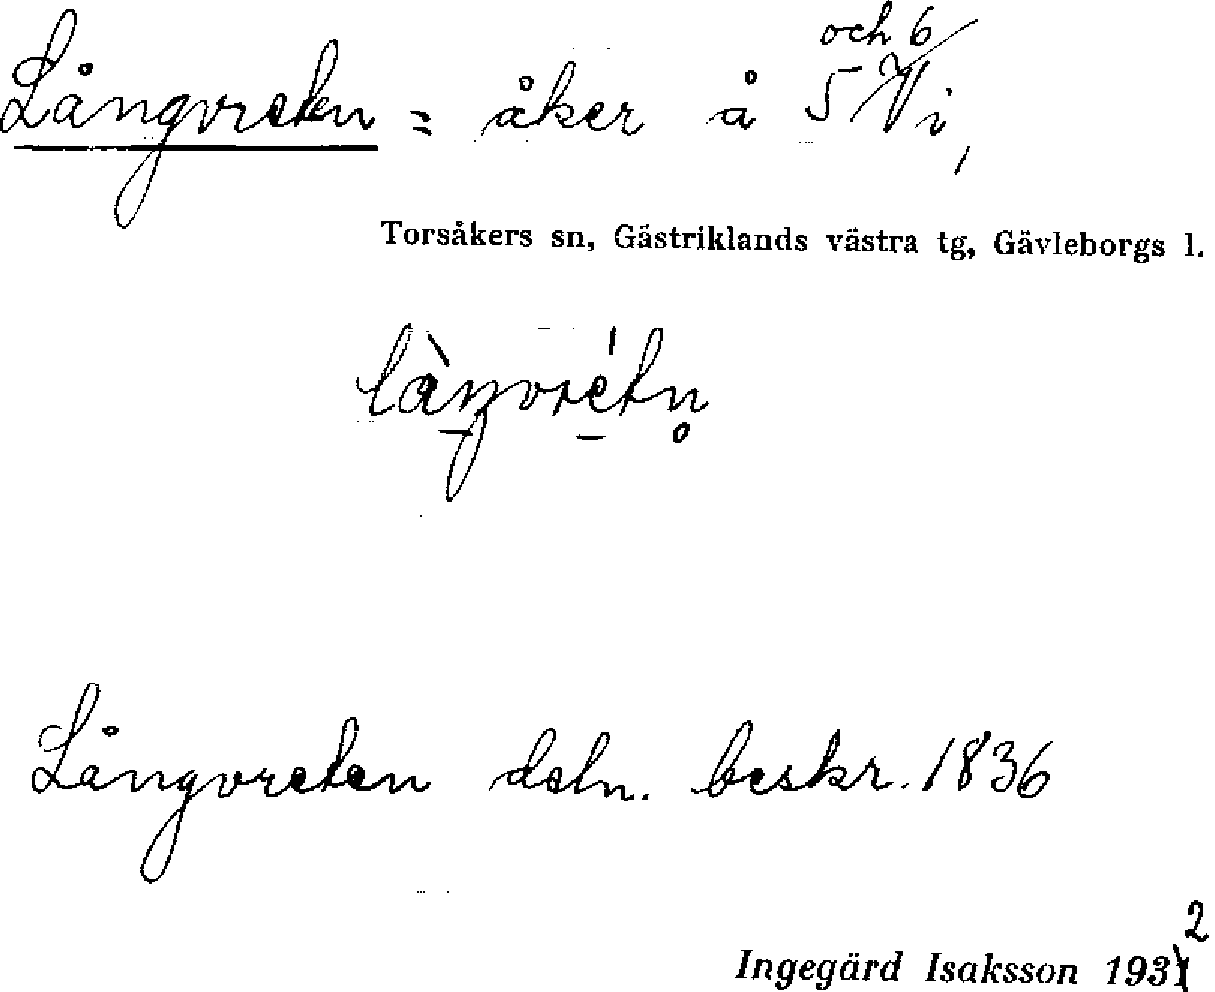 Långvreten = åker å 5 och 6 Vi,
Torsåkers sn, Gästriklands västra tg, Gävleborgs l.
Långvreten deln. beskr. 1836
Ingegärd Isaksson 1932